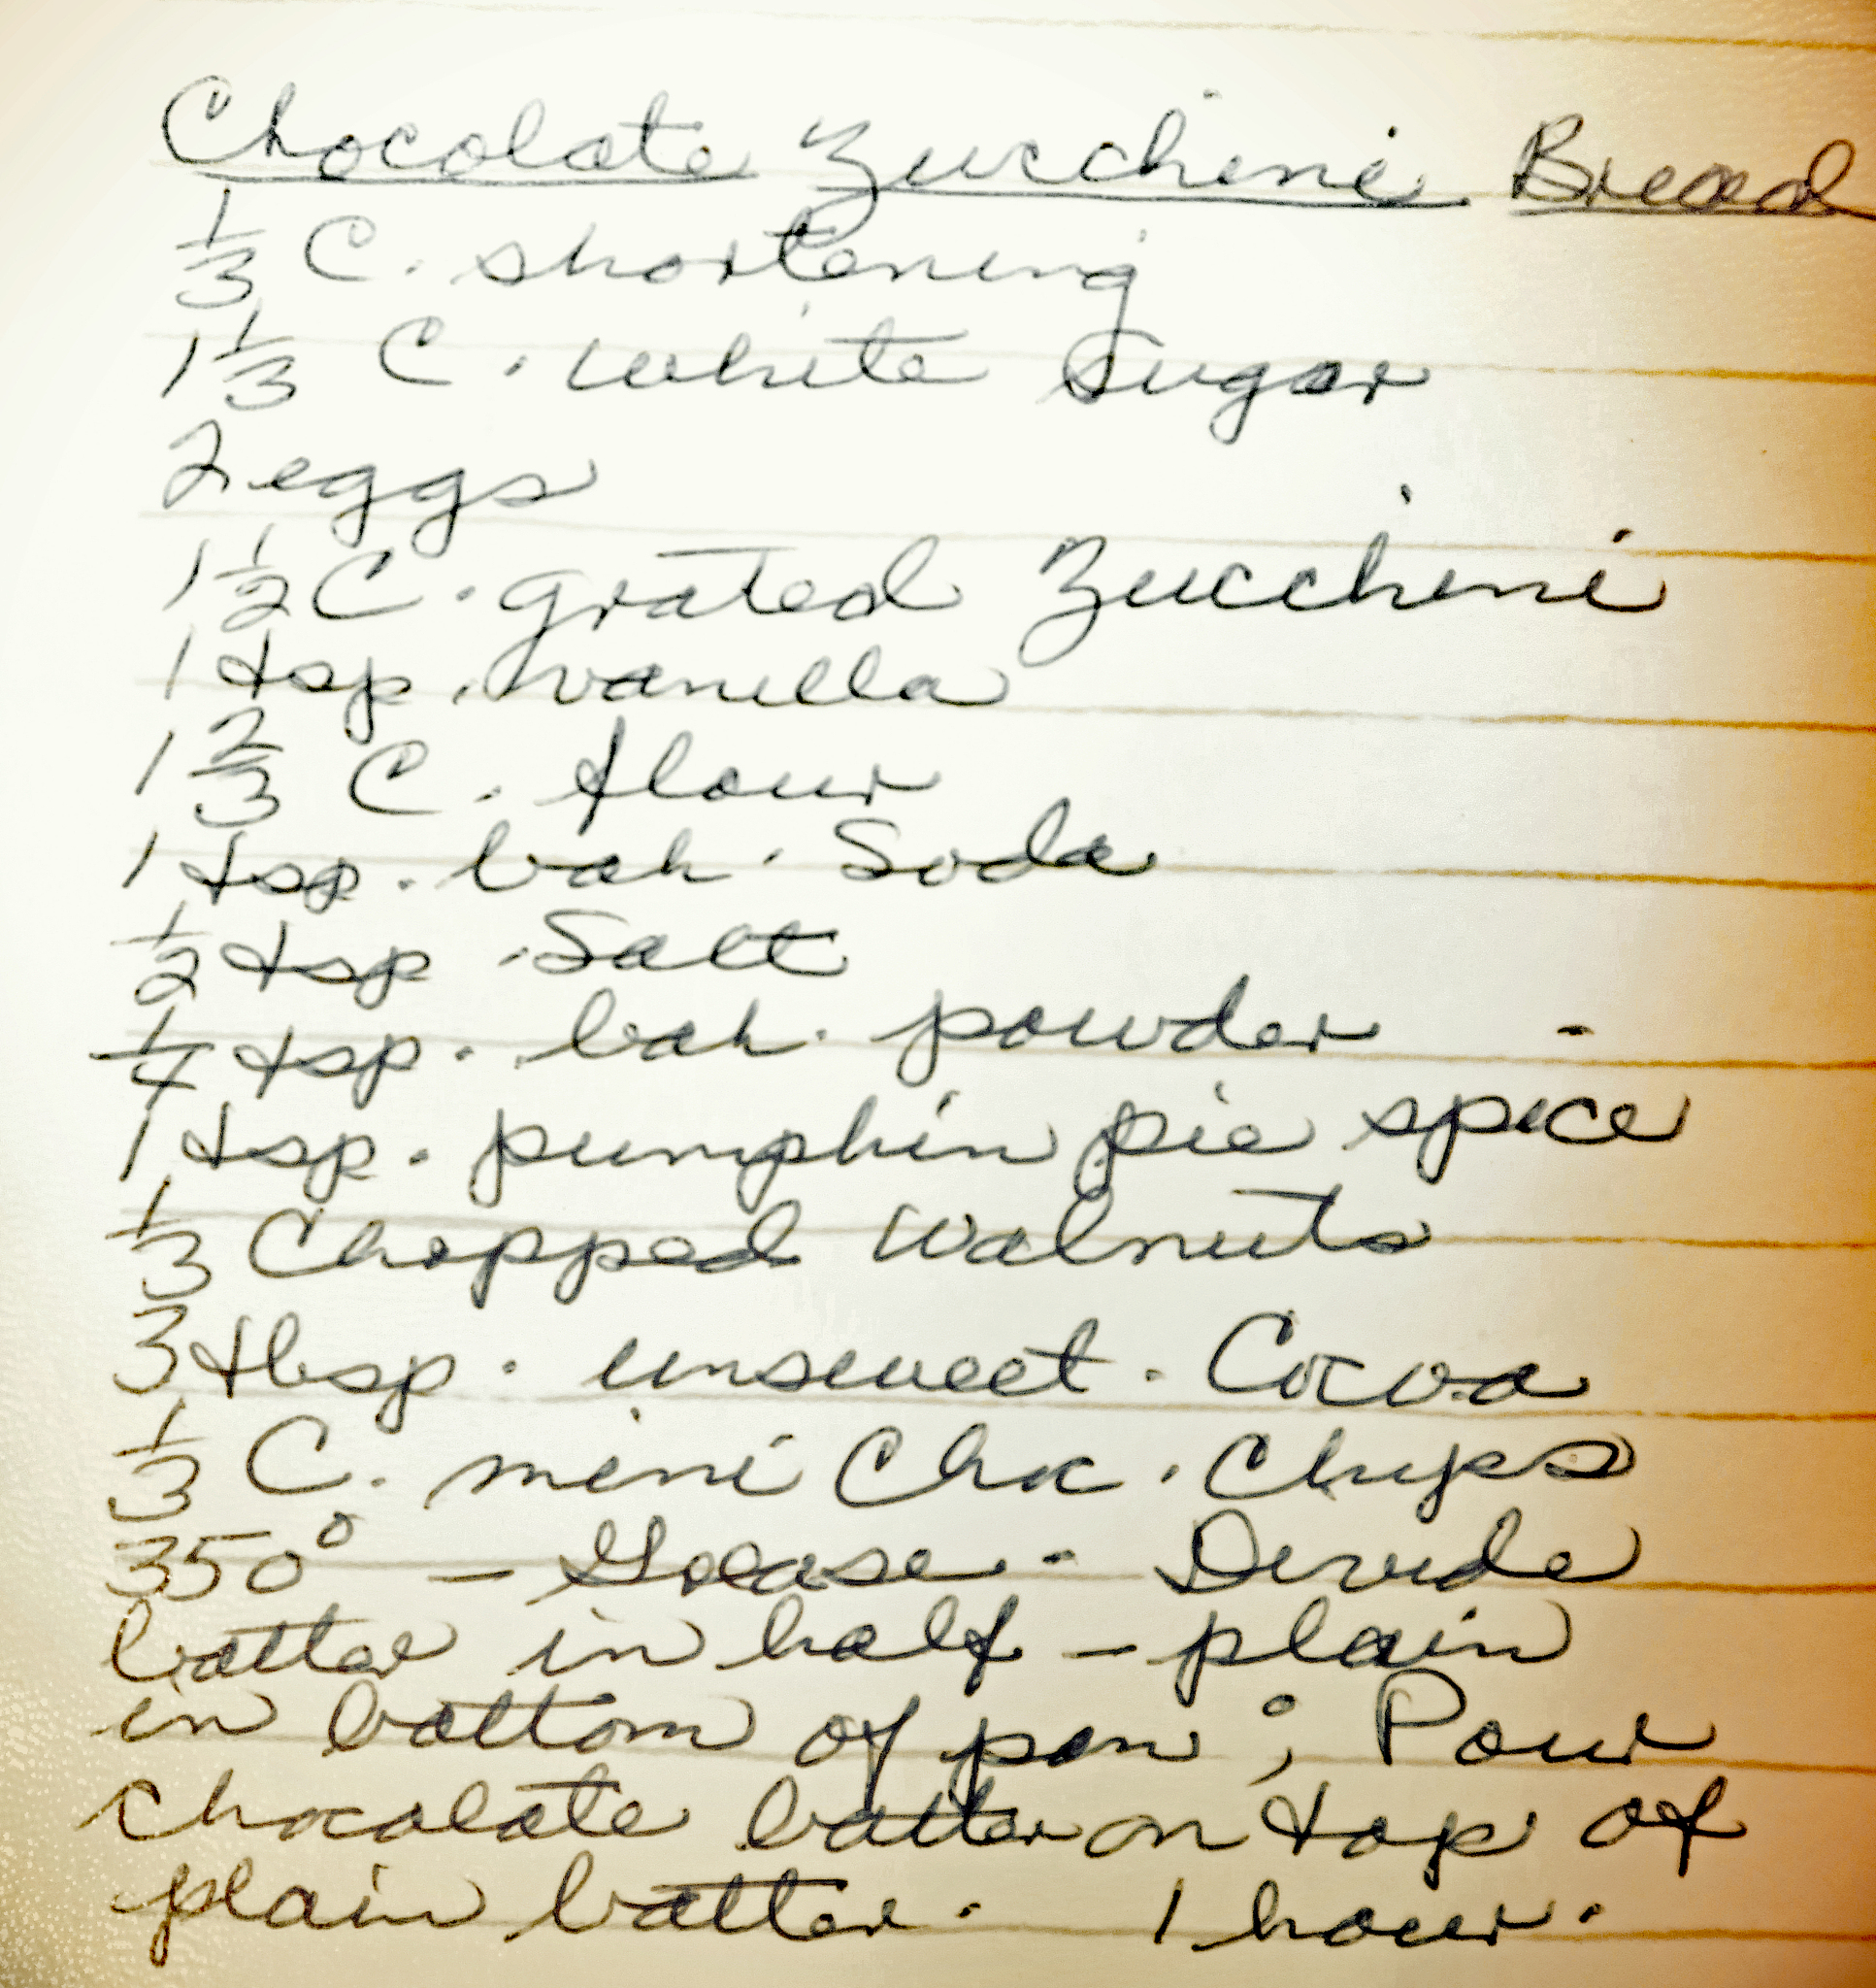 Chocolate Zucchini Bread
1/3 C. shortening
1 1/3 C. white Sugar
2 eggs
1 1/2 C. grated Zucchini
1 tsp. vanilla
1 2/3 C. flour
1 tsp. bak. Soda
1/2 tsp. Salt
1/4 tsp. bak. powder
1 tsp. pumpkin pie spice
1/3 Chopped Walnuts
3 tbsp. unsweet. Cocoa
1/3 C. mini Choc. Chips
350° - Grease - Divide
batter in half - plain
in bottom of pan; Pour
chocolate batter on top of
plain batter. 1 hour.